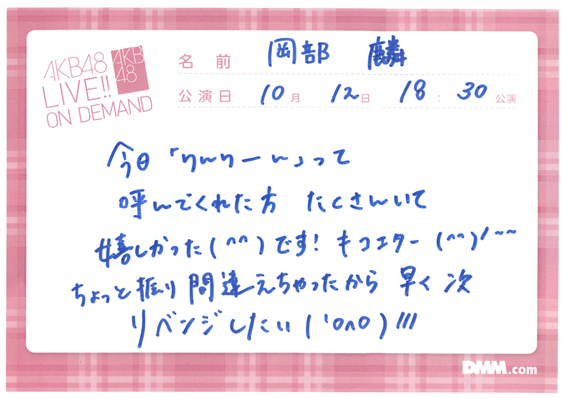 AKB48
LIVE!!
ON DEMAND
AKB
48
名前 岡部 麟
公演日 10月 12日 18:30公演
今日「りんりーん」って
呼んでくれた方 たくさんいて
嬉しかった(^^)です! キコエター(^^)/~~
ちょっと振り間違えちゃったから 早く 次
リベンジしたい('0^0)///
DMM.com